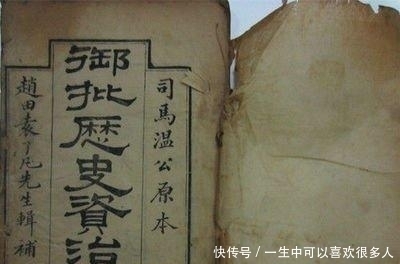 司馬溫公原本
御批歷史資治
趙田袁了凡先生輯補
快传号/一生中可以喜欢很多人